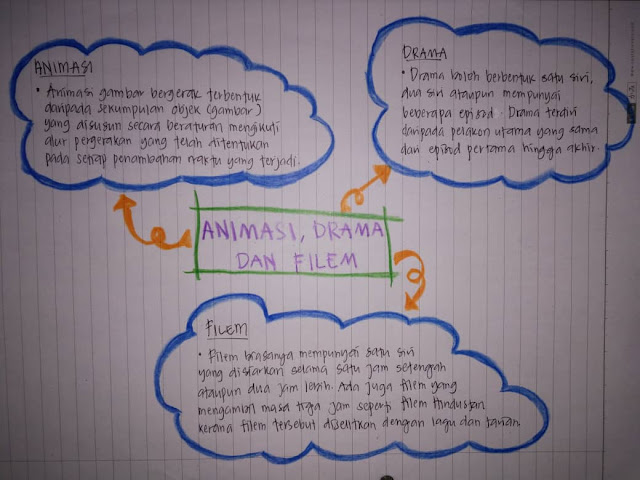 ANIMASI
• Animasi gambar bergerak terbentuk
daripada sekumpulan objek (gambar)
yang disusun secara beraturan mengikuti
alur pergerakan yang telah ditentukan
pada setiap penambahan waktu yang terjadi.
DRAMA
• Drama boleh berbentuk satu siri,
dua siri ataupun mempunyai
beberapa episod. Drama terdiri
daripada pelakon utama yang sama
dari episod pertama hingga akhir.
ANIMASI, DRAMA
DAN FILEM
FILEM
• Filem biasanya mempunyai satu siri
yang disiarkan selama satu jam setengah
ataupun dua jam lebih. Ada juga filem yang
mengambil masa tiga jam seperti filem Hindustan
kerana filem tersebut diselitkan dengan lagu dan tarian.